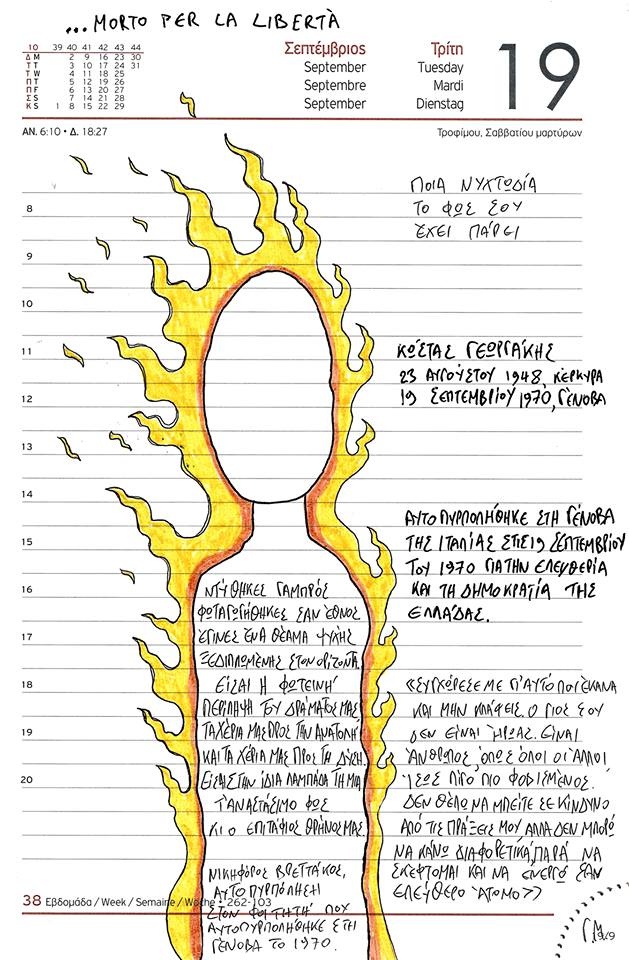 ...MORTO PER LA LIBERTÀ
10 39 40 41 42 43 44
Δ M 2 9 16 23 30
T T 3 10 17 24 31
T W 4 11 18 25
Π T 5 12 19 26
Π F 6 13 20 27
Σ S 7 14 21 28
K S 1 8 15 22 29
Σεπτέμβριος Τρίτη
September Tuesday
Septembre Mardi
September Dienstag
19
ΑΝ. 6:10 • Δ. 18:27
Τροφίμου, Σαββατίου μαρτύρων
ΠΟΙΑ ΝΥΧΤΩΔΙΑ
ΤΟ ΦΩΣ ΣΟΥ
ΈΧΕΙ ΠΑΡΕΙ
8
9
10
11
12
13
14
15
16
17
18
19
20
ΚΩΣΤΑΣ ΓΕΩΡΓΑΚΗΣ
23 ΑΥΓΟΥΣΤΟΥ 1948, ΚΕΡΚΥΡΑ
19 ΣΕΠΤΕΜΒΡΙΟΥ 1970, ΓΕΝΟΒΑ
ΑΥΤΟΠΥΡΠΟΛΗΘΗΚΕ ΣΤΗ ΓΕΝΟΒΑ
ΤΗΣ ΙΤΑΛΙΑΣ ΣΤΙΣ 19 ΣΕΠΤΕΜΒΡΙΟΥ
ΤΟΥ 1970 ΓΙΑ ΤΗΝ ΕΛΕΥΘΕΡΙΑ
ΚΑΙ ΤΗ ΔΗΜΟΚΡΑΤΙΑ ΤΗΣ
ΕΛΛΑΔΑΣ.
ΝΤΥΘΗΚΕΣ ΓΑΜΠΡΟΣ
ΦΩΤΑΓΩΓΗΘΗΚΕΣ ΣΑΝ ΕΘΝΟΣ
ΕΓΙΝΕΣ ΕΝΑ ΘΕΑΜΑ ΨΥΧΗΣ
ΞΕΔΙΠΛΩΜΕΝΗΣ ΣΤΟΝ ΟΡΙΖΟΝΤΑ.
ΕΙΣΑΙ Η ΦΩΤΕΙΝΗ
ΠΕΡΙΛΗΨΗ ΤΟΥ ΔΡΑΜΑΤΟΣ ΜΑΣ
ΤΑ ΧΕΡΙΑ ΜΑΣ ΠΡΟΣ ΤΗΝ ΑΝΑΤΟΛΗ
ΚΑΙ ΤΑ ΧΕΡΙΑ ΜΑΣ ΠΡΟΣ ΤΗ ΔΥΣΗ.
ΕΙΣΑΙ ΣΤΗΝ ΙΔΙΑ ΛΑΜΠΑΔΑ ΤΗ ΜΙΑ
Τ' ΑΝΑΣΤΑΣΙΜΟ ΦΩΣ
ΚΙ Ο ΕΠΙΤΑΦΙΟΣ ΘΡΗΝΟΣ ΜΑΣ
ΝΙΚΗΦΟΡΟΣ ΒΡΕΤΤΑΚΟΣ,
ΑΥΤΟΠΥΡΠΟΛΗΣΗ
ΣΤΟΝ ΦΟΙΤΗΤΗ ΠΟΥ
ΑΥΤΟΠΥΡΠΟΛΗΘΗΚΕ ΣΤΗ
ΓΕΝΟΒΑ ΤΟ 1970.
«ΣΥΓΧΩΡΕΣΕ ΜΕ ΓΙ' ΑΥΤΟ ΠΟΥ ΕΚΑΝΑ
ΚΑΙ ΜΗΝ ΚΛΑΨΕΙΣ. Ο ΓΙΟΣ ΣΟΥ
ΔΕΝ ΕΙΝΑΙ ΗΡΩΑΣ. ΕΙΝΑΙ
ΆΝΘΡΩΠΟΣ, ΟΠΩΣ ΟΛΟΙ ΟΙ ΆΛΛΟΙ
ΊΣΩΣ ΛΙΓΟ ΠΙΟ ΦΟΒΙΣΜΕΝΟΣ.
ΔΕΝ ΘΕΛΩ ΝΑ ΜΠΕΙΤΕ ΣΕ ΚΙΝΔΥΝΟ
ΑΠΟ ΤΙΣ ΠΡΑΞΕΙΣ ΜΟΥ ΑΛΛΑ ΔΕΝ ΜΠΟΡΩ
ΝΑ ΚΑΝΩ ΔΙΑΦΟΡΕΤΙΚΑ, ΠΑΡΑ ΝΑ
ΣΚΕΦΤΟΜΑΙ ΚΑΙ ΝΑ ΕΝΕΡΓΩ ΣΑΝ
ΕΛΕΥΘΕΡΟ ΆΤΟΜΟ»
38 Εβδομάδα / Week / Semaine / Woche • 262-103